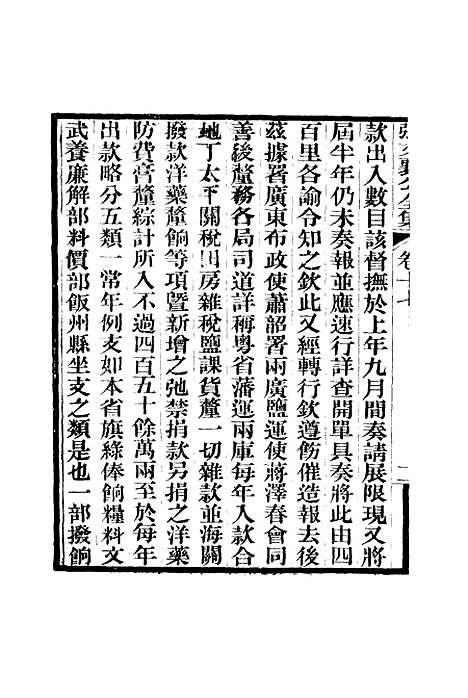 張文襄公全集 卷十七 二
款出入數目該督撫於上年九月間奏請展限現又將
屆半年仍未奏報並應速行詳查開單具奏將此由四
百里各諭令知之欽此又經轉行欽遵飭催造報去後
茲據署廣東布政使蕭韶署兩廣鹽運使蔣澤春會同
善後釐務各局司道詳稱粵省藩運兩庫每年入款合
地丁太平關稅田房雜稅鹽課貨釐一切雜款並海關
撥款洋藥釐餉等項暨新增之弛禁捐款另捐之洋藥
防費膏釐綜計所入不過四百五十餘萬兩至於每年
出款略分五類一常年例支如本省旗綠俸餉糧料文
武養廉解部料價部飯州縣坐支之類是也一部撥餉